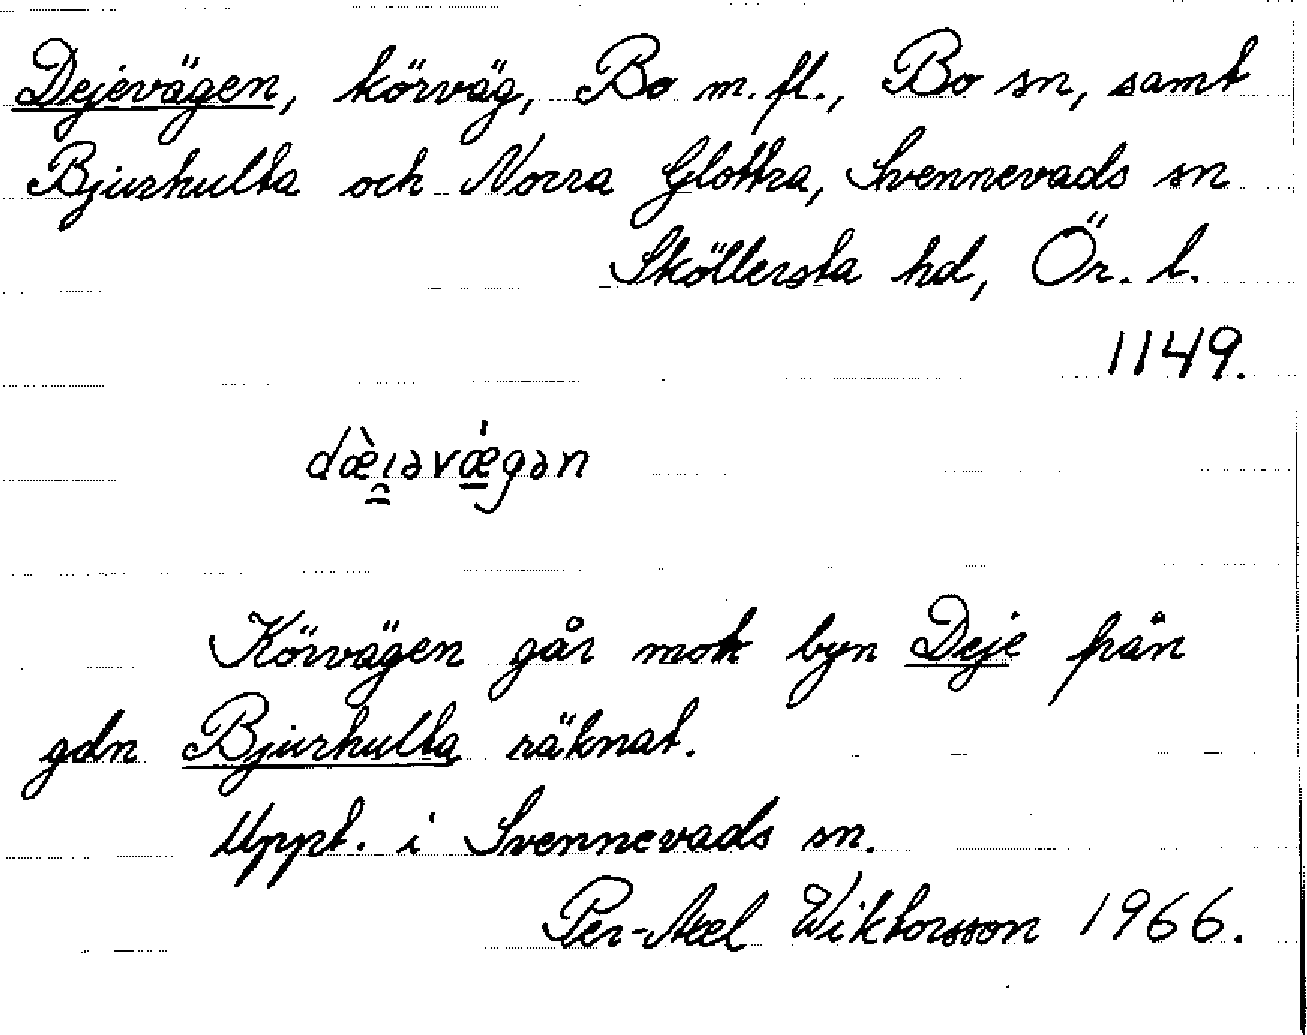 Dejevägen, körväg, Bo m.fl., Bo sn, samt
Bjurhulta och Norra Glottra, Svennevads sn
Sköllersta hd, Ör. l.
1149.
dæ̀ı̯əvǽgən
Körvägen går mot byn Deje från
gdn Bjurhulta räknat.
Uppt. i Svennevads sn.
Per-Axel Wiktorsson 1966.